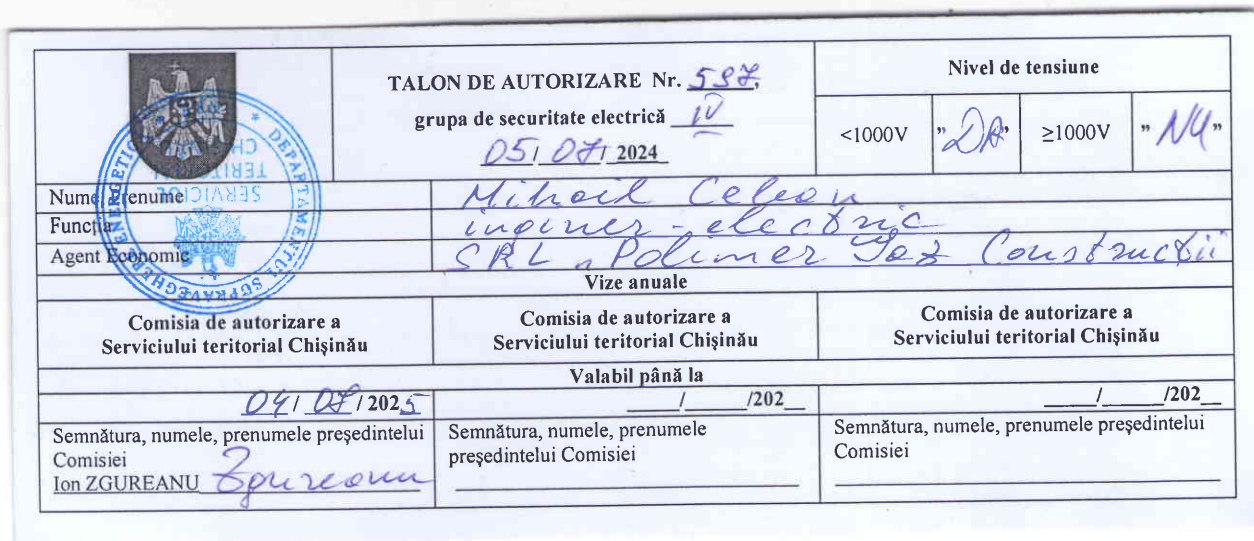 TALON DE AUTORIZARE Nr. 597,
grupa de securitate electrică IV
05/ 07/ 2024
Nivel de tensiune
<1000V "DA" ≥1000V "NU"
Nume, prenume Mihail
Funcția inginer-electric
Agent Economic SRL „Polimer Gaz Construcții
Vize anuale
Comisia de autorizare a
Serviciului teritorial Chișinău
Comisia de autorizare a
Serviciului teritorial Chișinău
Comisia de autorizare a
Serviciului teritorial Chișinău
Valabil până la
04/ 07/ 2025
____/______/202__
____/______/202__
Semnătura, numele, prenumele președintelui
Comisiei
Ion ZGUREANU Zgureanu
Semnătura, numele, prenumele
președintelui Comisiei
Semnătura, numele, prenumele președintelui
Comisiei
DEPARTAMENTUL SUPRAVEGHERE ENERGETIC
SERVICIUL